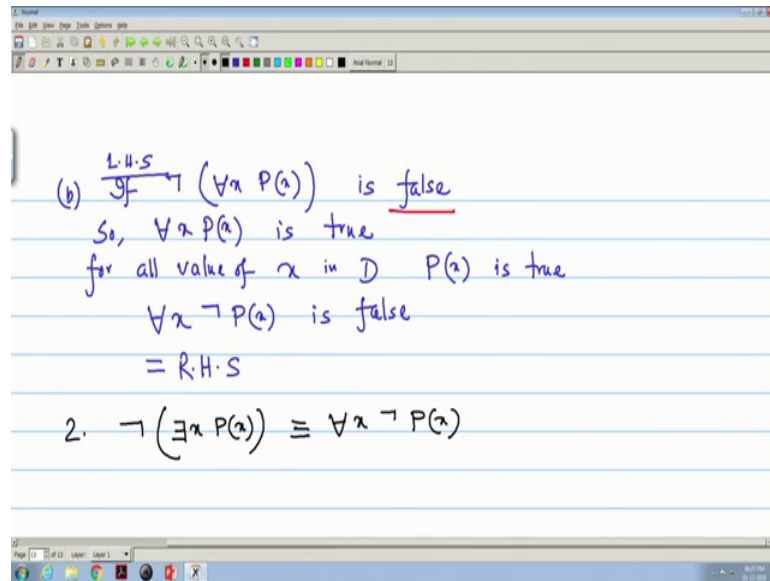 Journal
File Edit View Page Tools Options Help
Arial Normal 12
L.H.S
(b) If ¬ (∀x P(x)) is false
So, ∀x P(x) is true
for all value of x in D P(x) is true
∀x ¬ P(x) is false
= R.H.S
2. ¬ (∃x P(x)) ≡ ∀x ¬ P(x)
Page 13 of 13 Layer: Layer 1